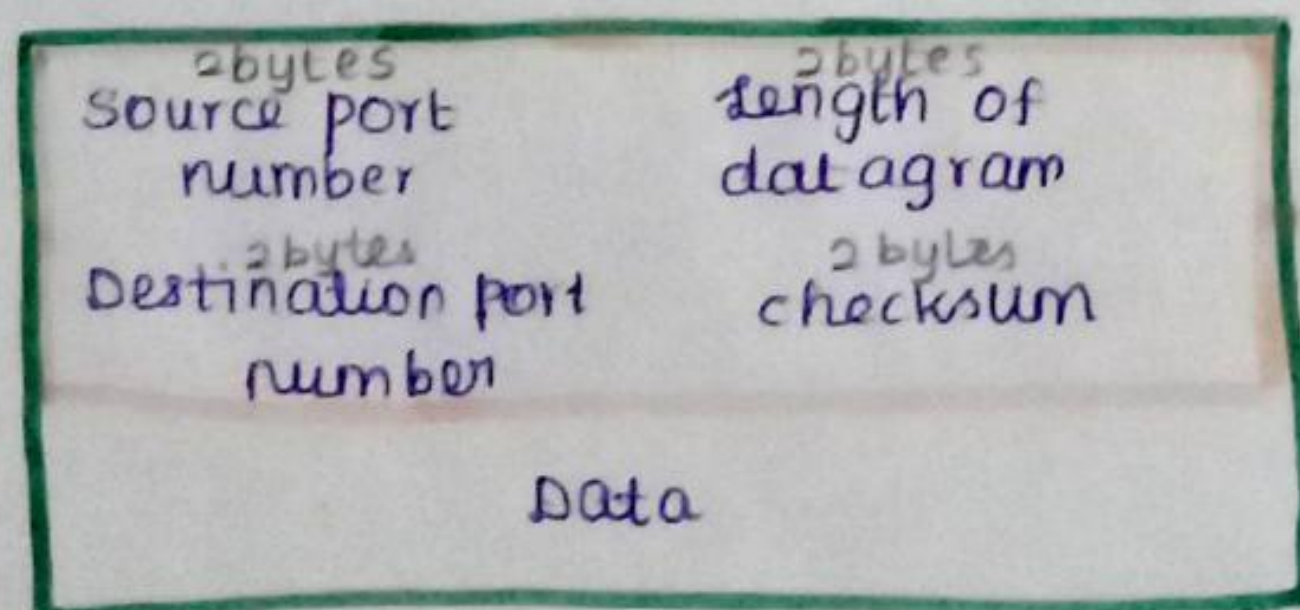 2bytes
Source port
number
2bytes
Length of
datagram
2bytes
Destination port
number
2 bytes
checksum
Data